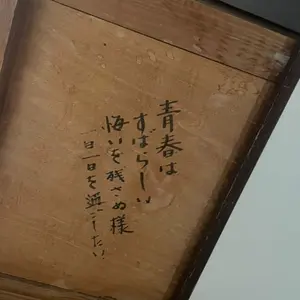 青春は
すばらしい
悔いを残さぬ様
一日一日を過ごしたい